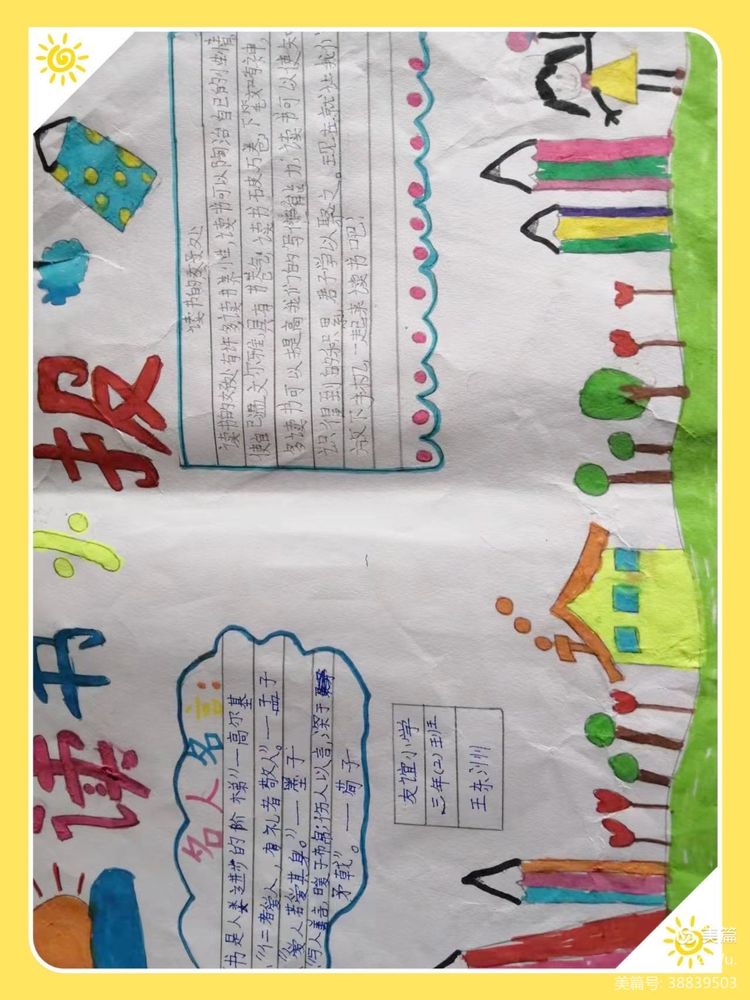 读书小报
名人名言:
书是人类进步的阶梯”一高尔基
“仁者爱人，有礼者敬人”。一孟子
“爱人若爱其身。”一墨子
与人善言，暖于布帛；伤人以言，深于
矛戟”。——荀子
友谊小学
三年(2)班
王东
读书的好处
读书的好处有许多，读书养性，读书可以陶冶自己的性情，
使自己温文尔雅具有书卷气；读书破万卷，下笔如有神，
多读书可以提高我们的写作能力，读书可以使知
识得到的积累，君子学以聚之。现在就让我们
放下手机，一起来读书吧！
美篇
美篇号: 38839503